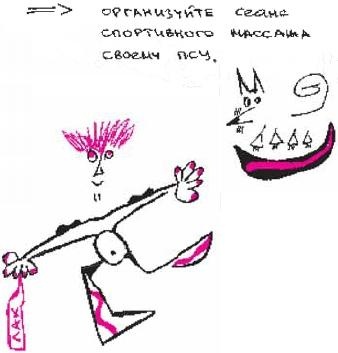 ОРГАНИЗУЙТЕ СЕАНС
СПОРТИВНОГО МАССАЖА
СВОЕМУ ПСУ.
ЛАК